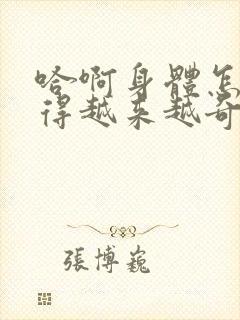 哈啊身體怎
得越来越奇
張博巍